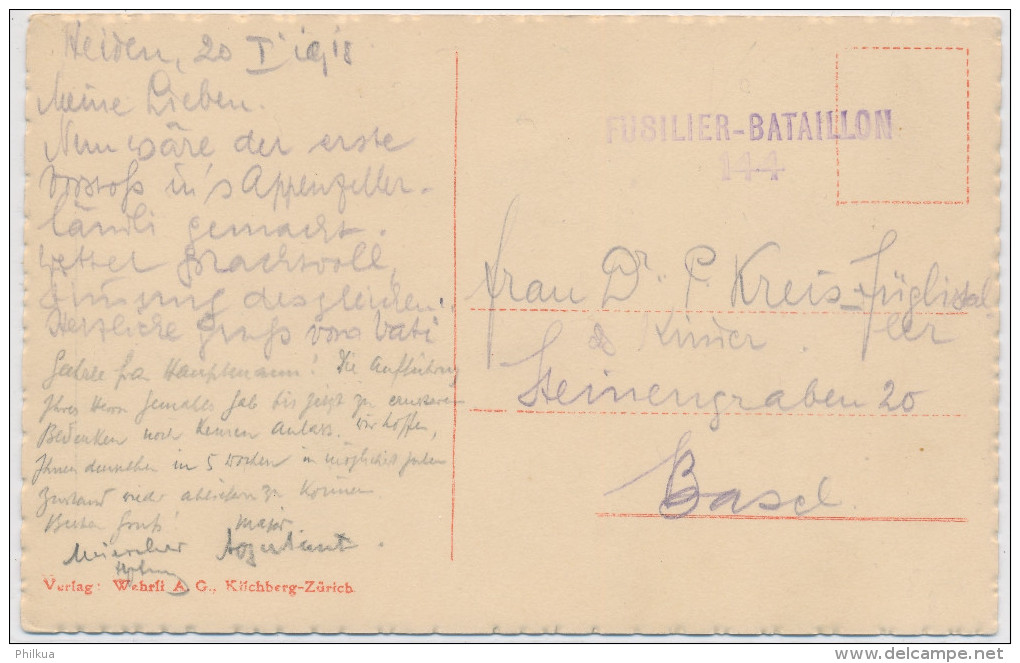 Heiden, 20 I 1918
Meine Lieben.
Nun wäre der erste
Vorstoß in's Appenzeller-
ländli gemacht.
Wetter prachtvoll,
Stimmung desgleichen.
Herzliche Grüße vom Vati
Frau Hauptmann! Die Aufführung
Ihres Herrn Gemahls gab bis jetzt zu ernsteren
Bedenken noch keinen Anlass. Wir hoffen,
Ihnen denselben in 5 Wochen in möglichst gutem
Zustand wieder abliefern zu können
Besten Gruß!
Major
Adjutant.
FUSILIER-BATAILLON
144
Frau Dr. P. Kreis-Füglistaller
& Kinder
Steinengraben 20
Basel.
Verlag: Wehrli A. G., Kilchberg-Zürich
Philkua
www.delcampe.net